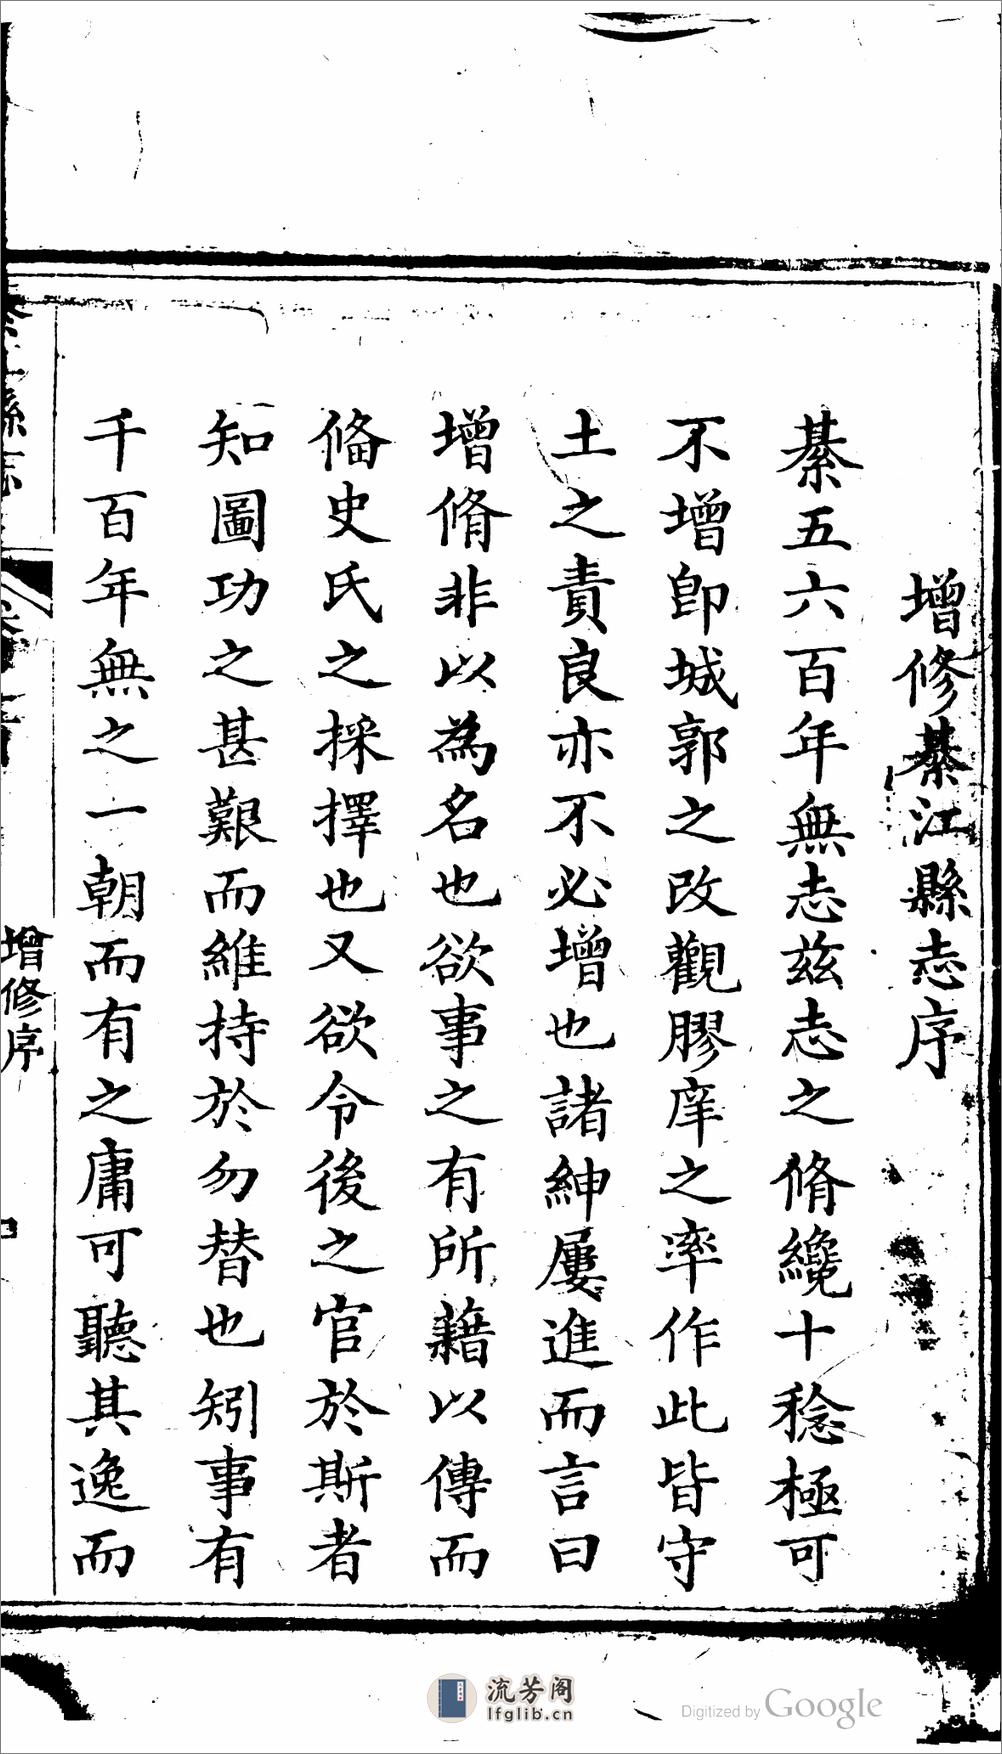 增修綦江縣志序
綦五六百年無志兹志之脩纔十稔極可
不增卽城郭之改觀膠庠之率作此皆守
土之責良亦不必增也諸紳屢進而言曰
增脩非以為名也欲事之有所藉以傳而
俻史氏之採擇也又欲令後之官於斯者
知圖功之甚艱而維持於勿替也矧事有
千百年無之一朝而有之庸可聽其逸而
增修序
流芳阁
lfglib.cn
Digitized by Google